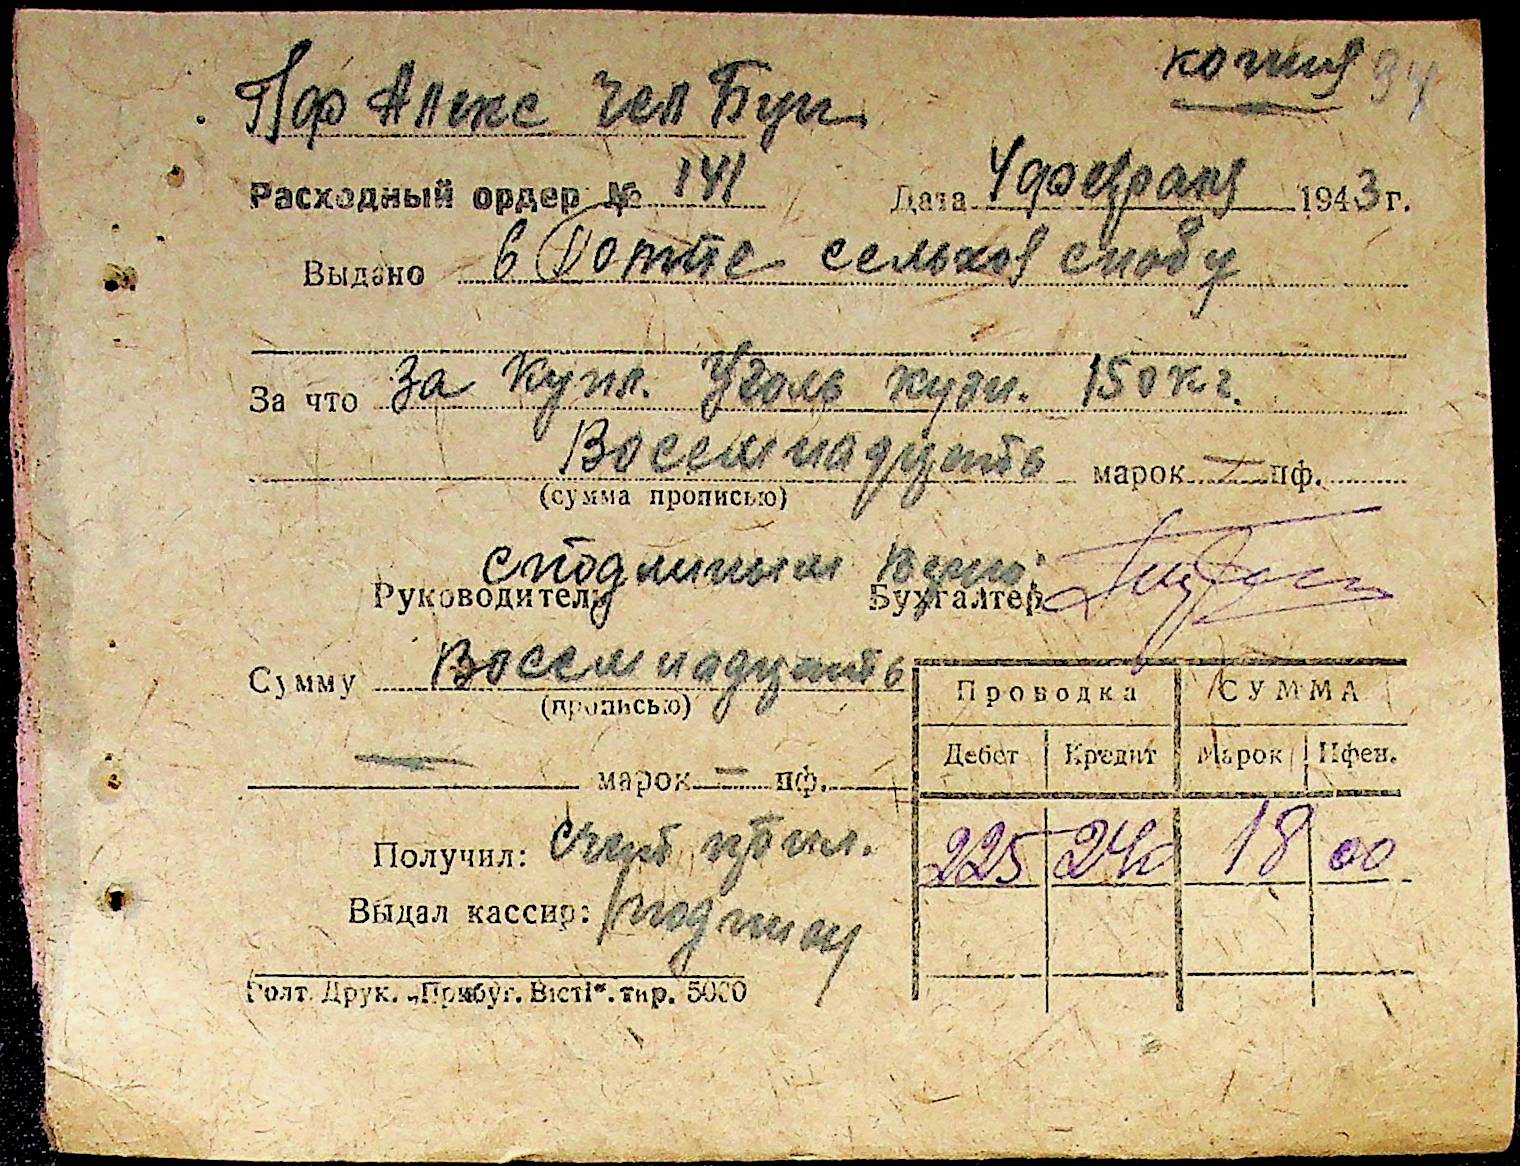 копия 94
Пф Алекс Чел Бук
Расходный ордер № 141 Дата 4 февраля 1943 г.
Выдано в сельхоз снабу
За что За купл. Уголь кузн. 150 кг.
Восемнадцать марок — пф.
(сумма прописью)
с подлиным верно:
Руководитель Бухгалтер
Сумму Восемнадцать
(прописью)
— марок — пф.
Проводка СУММА
Дебет Кредит Марок Пфен.
225 18 00
Получил: счет
Выдал кассир: подписи
Голт. Друк. „Прибуг. Вісті“. тир. 5000